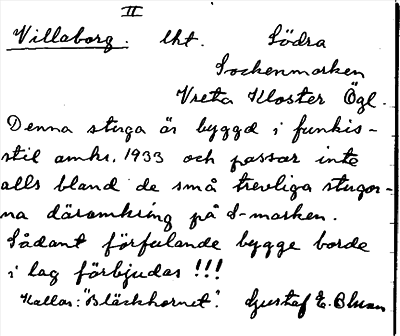 II
Villaborg. lht. Södra
Sockenmarken
Vreta Kloster Ögl.
Denna stuga är byggd i funkis-
stil omkr. 1933 och passar inte
alls bland de små trevliga stugor-
na däromkring på S-marken.
Sådant förfulande bygge borde
i lag förbjudas !!!
Kallas: "Bläckhornet". Gustaf E. Bluan